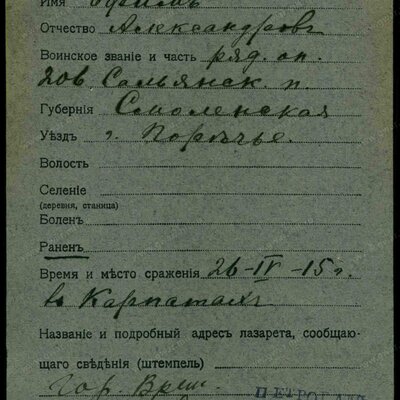 Имя Ефимъ
Отчество Александровъ
Воинское званіе и часть ряд. оп.
208 Сальянск. п.
Губернія Смоленская
Уѣздъ г. Порѣчье.
Волость
Селеніе
(деревня, станица)
Боленъ
Раненъ
Время и мѣсто сраженія 26-IV-15 г.
въ Карпатахъ
Названіе и подробный адресъ лазарета, сообщаю-
щаго свѣдѣнія (штемпель)
Гор. Врем.
ПЕТРОГРАД